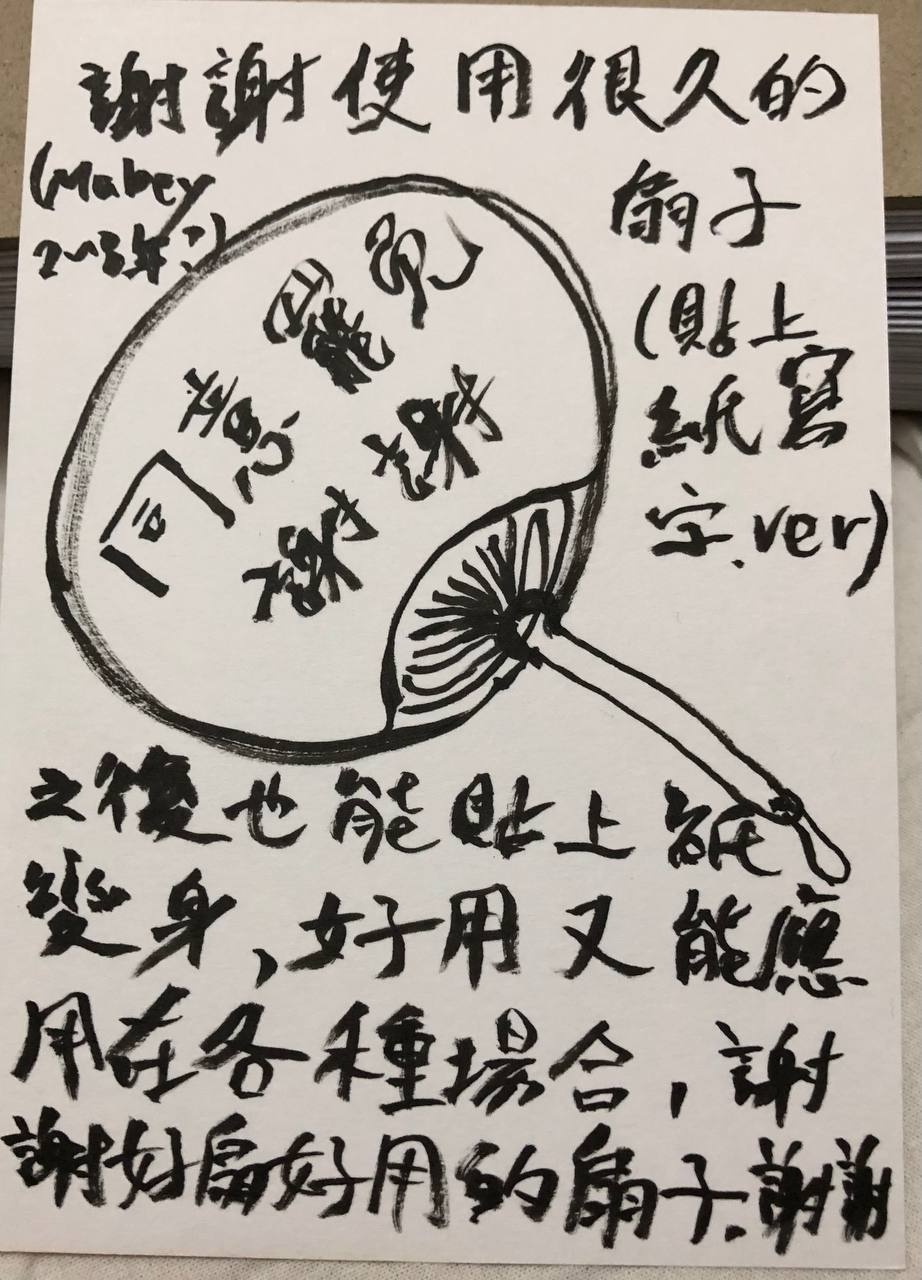 謝謝使用很久的
扇子
(貼上
紙寫
字.ver)
(Mabey
2〜3年?)
同意罷免
謝謝
之後也能貼上紙
變身,好用又能應
用在各種場合,謝
謝好扇好用的扇子.謝謝